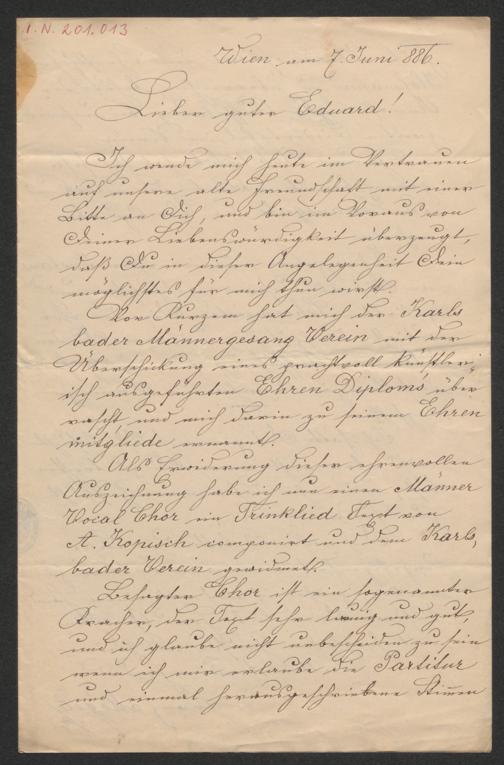 I.N. 201.013
Wien am 7. Juni 886.
Lieber guter Eduard!
Ich wende mich heute im Vertrauen
auf unsere alte Freundschaft mit einer
Bitte an Dich, und bin im Voraus von
Deiner Liebenswürdigkeit überzeugt,
daß Du in dieser Angelegenheit Dein
möglichstes für mich thun wirst.
Vor Kurzem hat mich der Karls
bader Männergesang Verein mit der
Überschickung eines prachtvoll künstler,
isch ausgeführten Ehren Diploms über
rascht und mich darin zu seinem Ehren
mitgliede ernannt.
Als Erwiderung dieser ehrenvollen
Auszeichnung habe ich nun einen Männer
Vocal Chor ein Trinklied Text von
A. Kopisch componirt und dem Karls,
bader Verein gewidmet.
Besagter Chor ist ein sogenannter
Kracher, der Text sehr launig und gut,
und ich glaube nicht unbescheiden zu sein
wenn ich mir erlaube die Partitur
und einmal herausgeschriebene Stimmen